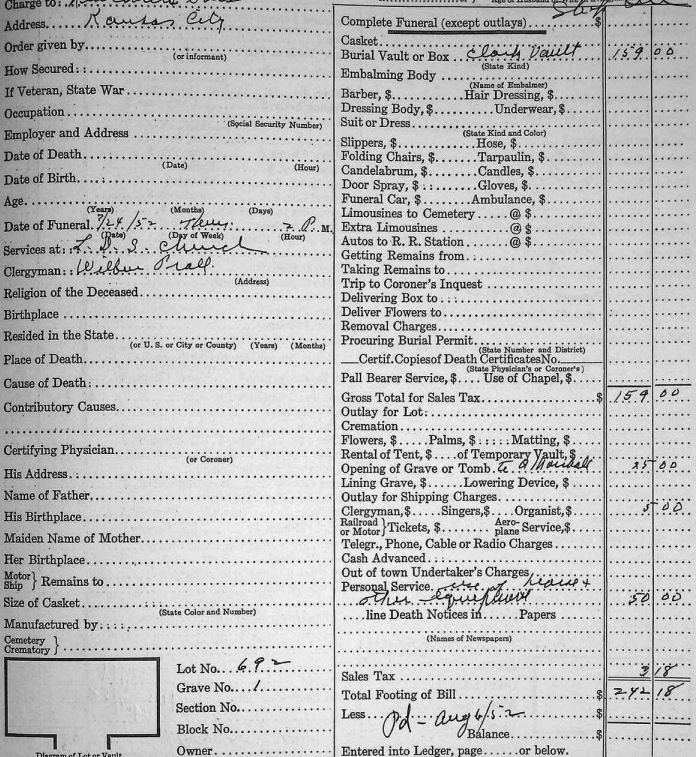 Charge to:
Address Kansas City
Order given by
(or informant)
How Secured
If Veteran, State War
Occupation
(Social Security Number)
Employer and Address
Date of Death
(Date) (Hour)
Date of Birth
Age
(Years) (Months) (Days)
Date of Funeral 7/24/52 Thurs 2 P. M.
(Date) (Day of Week) (Hour)
Services at: L. D. S. Church
Clergyman: Wilbur Prall
(Address)
Religion of the Deceased
Birthplace
Resided in the State
(or U. S. or City or County) (Years) (Months)
Place of Death
Cause of Death
Contributory Causes
Certifying Physician
(or Coroner)
His Address
Name of Father
His Birthplace
Maiden Name of Mother
Her Birthplace
Motor Ship } Remains to
Size of Casket
(State Color and Number)
Manufactured by
Cemetery Crematory }
Lot No. 692
Grave No. 1
Section No.
Block No.
Owner
Diagram of Lot or Vault
Complete Funeral (except outlays) $
Casket
Burial Vault or Box Clark Vault 159 00
(State Kind)
Embalming Body
(Name of Embalmer)
Barber, $ Hair Dressing, $
Dressing Body, $ Underwear, $
Suit or Dress
(State Kind and Color)
Slippers, $ Hose, $
Folding Chairs, $ Tarpaulin, $
Candelabrum, $ Candles, $
Door Spray, $ Gloves, $
Funeral Car, $ Ambulance, $
Limousines to Cemetery @ $
Extra Limousines @ $
Autos to R. R. Station @ $
Getting Remains from
Taking Remains to
Trip to Coroner's Inquest
Delivering Box to
Deliver Flowers to
Removal Charges
Procuring Burial Permit
(State Number and District)
Certif. Copies of Death Certificates No.
(State Physician's or Coroner's)
Pall Bearer Service, $ Use of Chapel, $
Gross Total for Sales Tax $ 159 00
Outlay for Lot
Cremation
Flowers, $ Palms, $ Matting, $
Rental of Tent, $ of Temporary Vault, $
Opening of Grave or Tomb to 25 00
Lining Grave, $ Lowering Device, $
Outlay for Shipping Charges
Clergyman, $ Singers, $ Organist, $ 5 00
Railroad or Motor } Tickets, $ Aeroplane Service, $
Telegr., Phone, Cable or Radio Charges
Cash Advanced
Out of town Undertaker's Charges
Personal Service use of +
other equipment 50 00
line Death Notices in Papers
(Names of Newspapers)
Sales Tax 3 18
Total Footing of Bill $ 242 18
Less Pd - Aug 6/52 $
Balance $
Entered into Ledger, page or below.